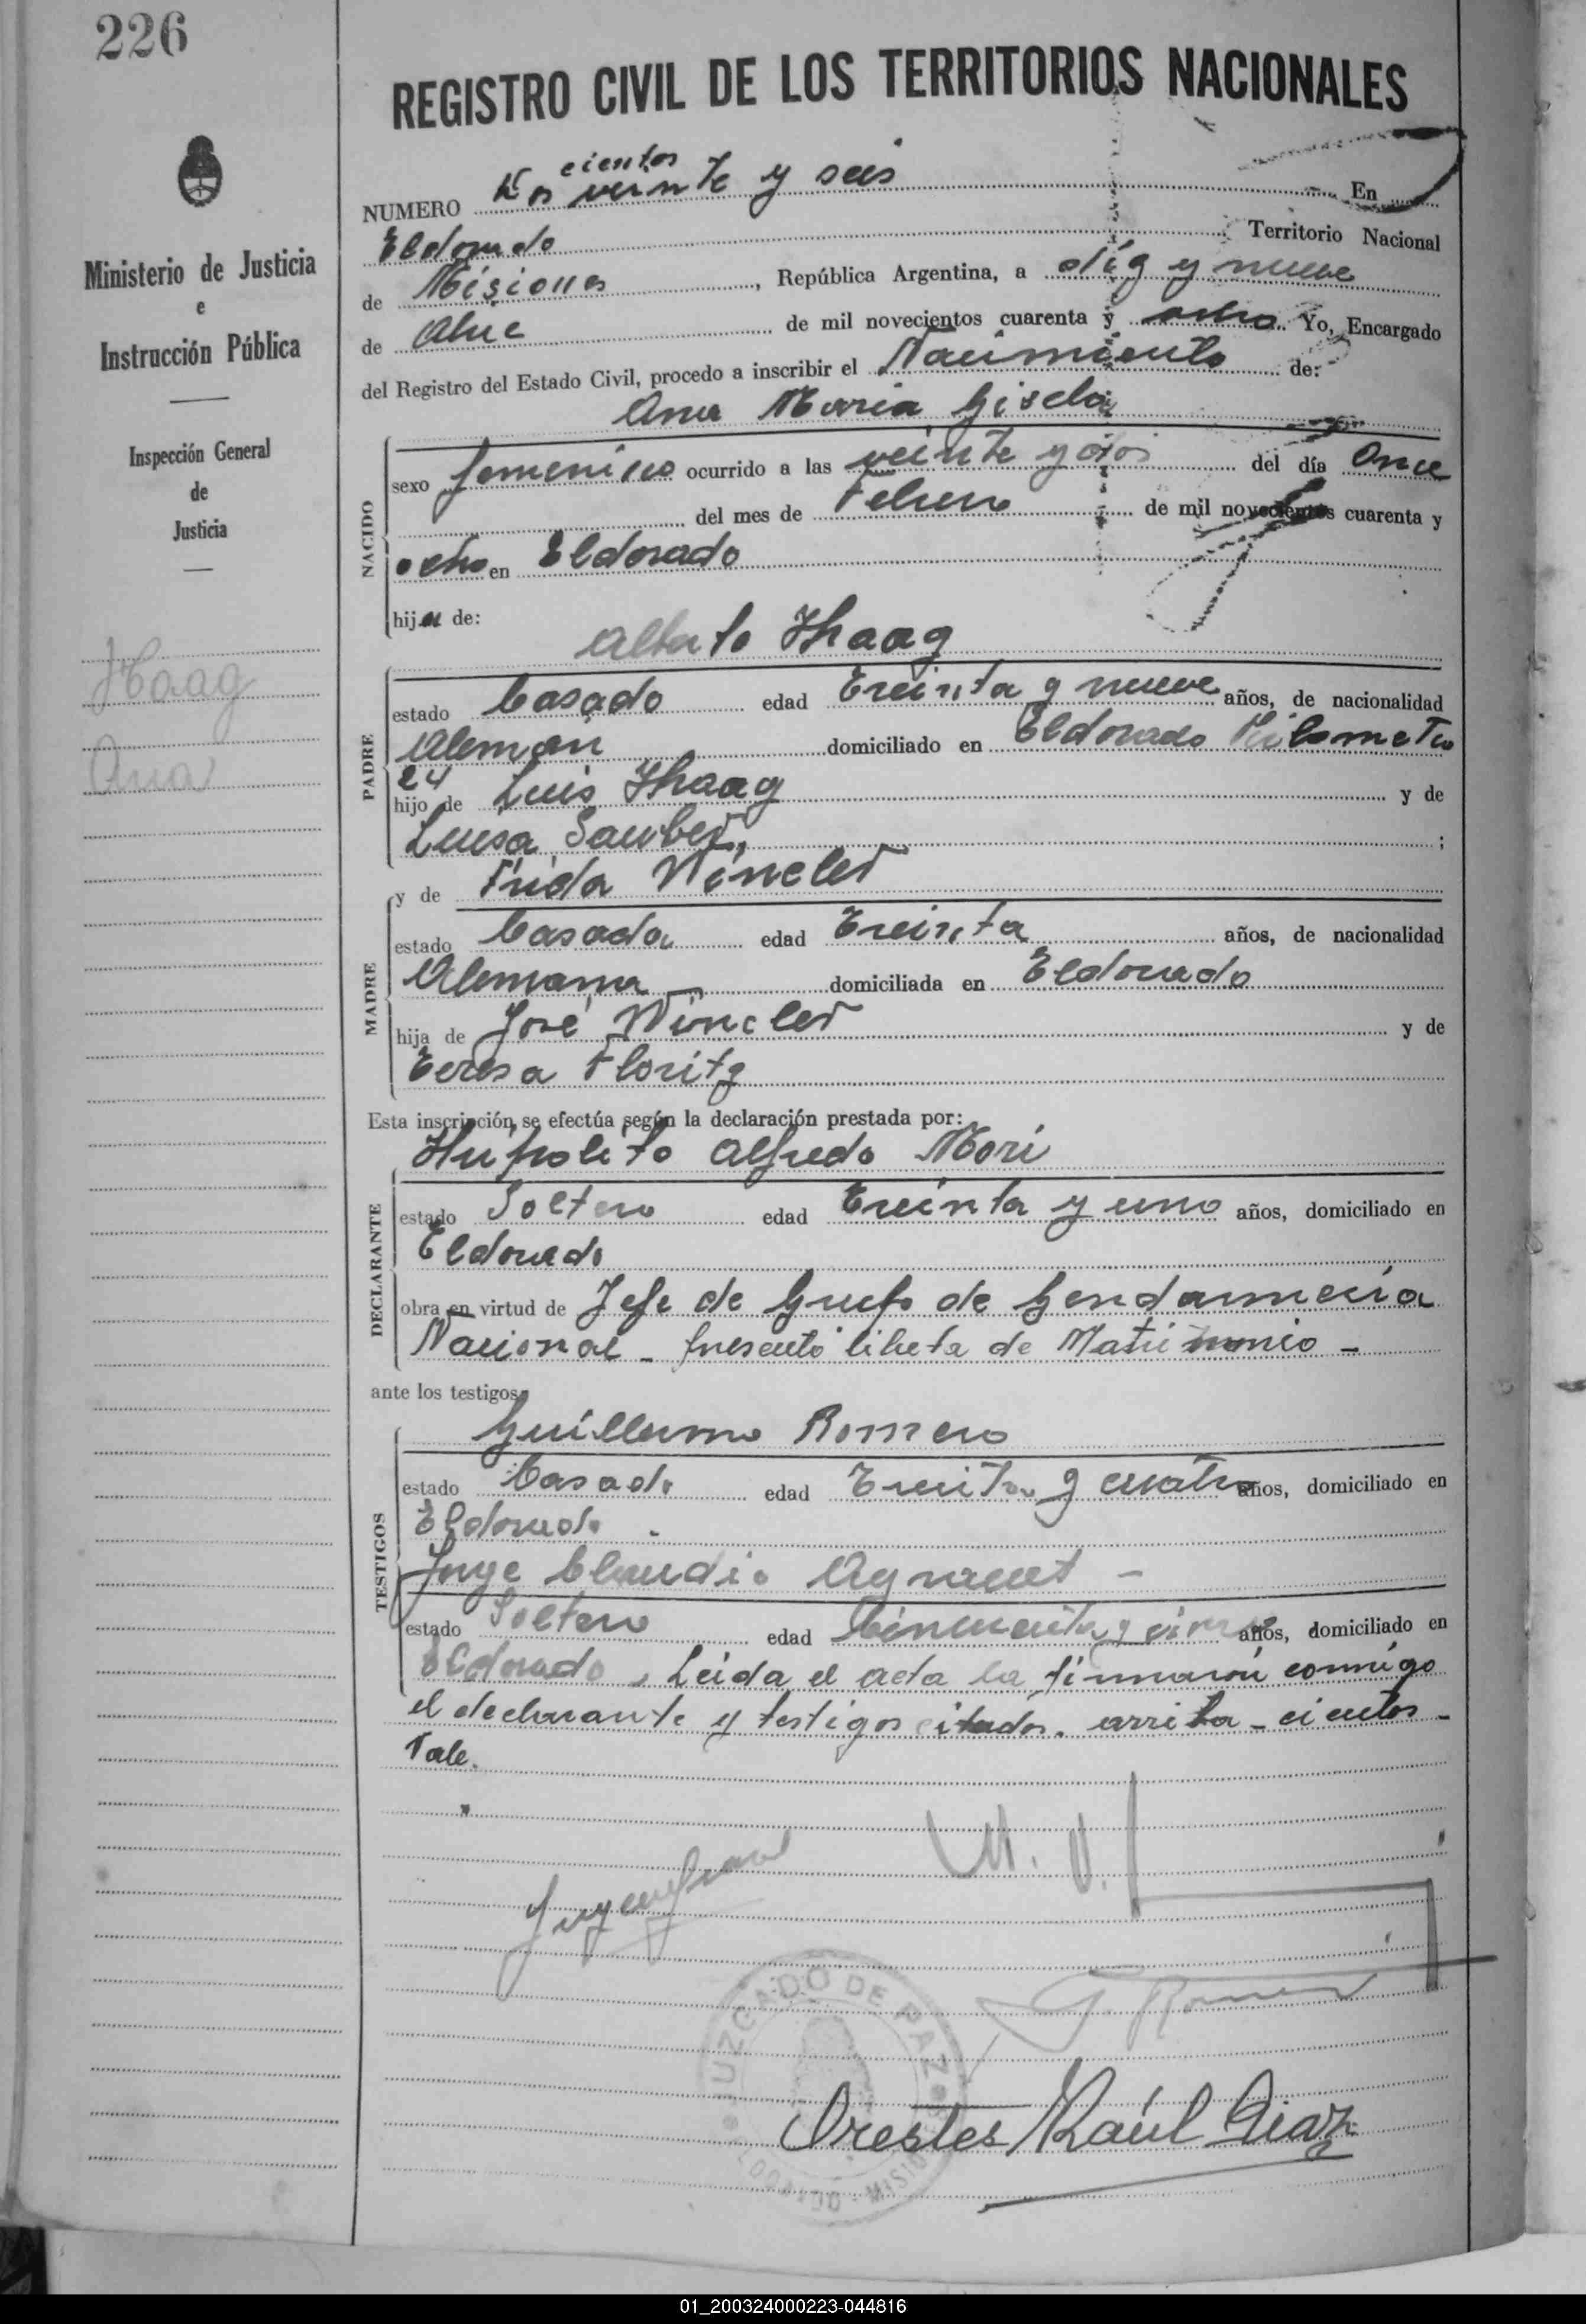 226
REGISTRO CIVIL DE LOS TERRITORIOS NACIONALES
Ministerio de Justicia
e
Instrucción Pública
Inspección General
de
Justicia
Haag
Ana
cientos
NUMERO Dos veinte y seis En
Eldorado Territorio Nacional
de Misiones, República Argentina, a diez y nueve
de de mil novecientos cuarenta y ocho Yo, Encargado
del Registro del Estado Civil, procedo a inscribir el Nacimiento de:
Ana Maria Gisela
NACIDO
sexo femenino ocurrido a las veinte y dos del día Once
del mes de Febrero de mil novecientos cuarenta y
ocho en Eldorado
hija de:
Alberto Haag
PADRE
estado Casado edad Treinta y nueve años, de nacionalidad
Aleman domiciliado en Eldorado Kilometro
24
hijo de Luis Haag y de
Luisa Sauber;
MADRE
y de Frida Wincler
estado Casada edad Treinta años, de nacionalidad
Alemana domiciliada en Eldorado
hija de José Wincler y de
Teresa Floritz
Esta inscripción, se efectúa según la declaración prestada por:
Hipolito Alfredo Mori
DECLARANTE
estado Soltero edad Treinta y uno años, domiciliado en
Eldorado
obra en virtud de Jefe de Grupo de Gendarmeria
Nacional - presentó libreta de Matrimonio -
ante los testigos
TESTIGOS
Guillermo Romero
estado Casado edad Treinta y cuatro años, domiciliado en
Eldorado.
Jorge Claudio -
estado Soltero edad Cincuenta y años, domiciliado en
Eldorado, Leida el acta la firmaron conmigo
el declarante y testigos citados. arriba - cientos -
Vale.
G. Romero
JUZGADO DE PAZ
ELDORADO - MISIONES
Orestes Raúl Diaz
01_200324000223-044816